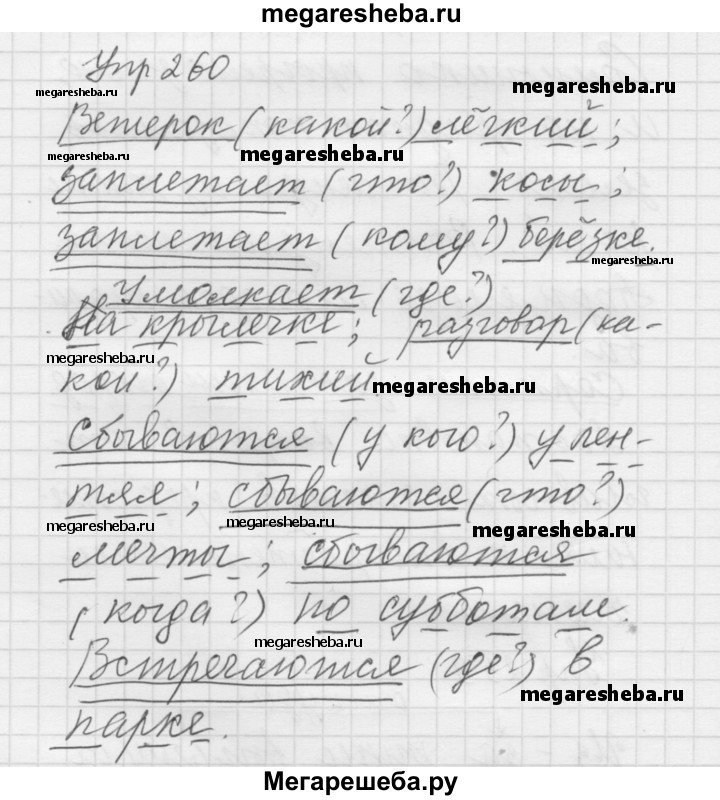 megaresheba.ru
Упр 260
megaresheba.ru
megaresheba.ru
Ветерок (какой?) лёгкий;
megaresheba.ru
megaresheba.ru
заплетает (что?) косы;
заплетает (кому?) берёзке.
megaresheba.ru
Умолкает (где?)
На крылечке; разговор (ка-
megaresheba.ru
кой?) тихий
megaresheba.ru
Сбываются (у кого?) у лен-
тяя; сбываются (что?)
megaresheba.ru
megaresheba.ru
megaresheba.ru
мечты; сбываются
(когда?) по субботам.
megaresheba.ru
Встречаются (где?) в
megaresheba.ru
парке.
Мегарешеба.ру